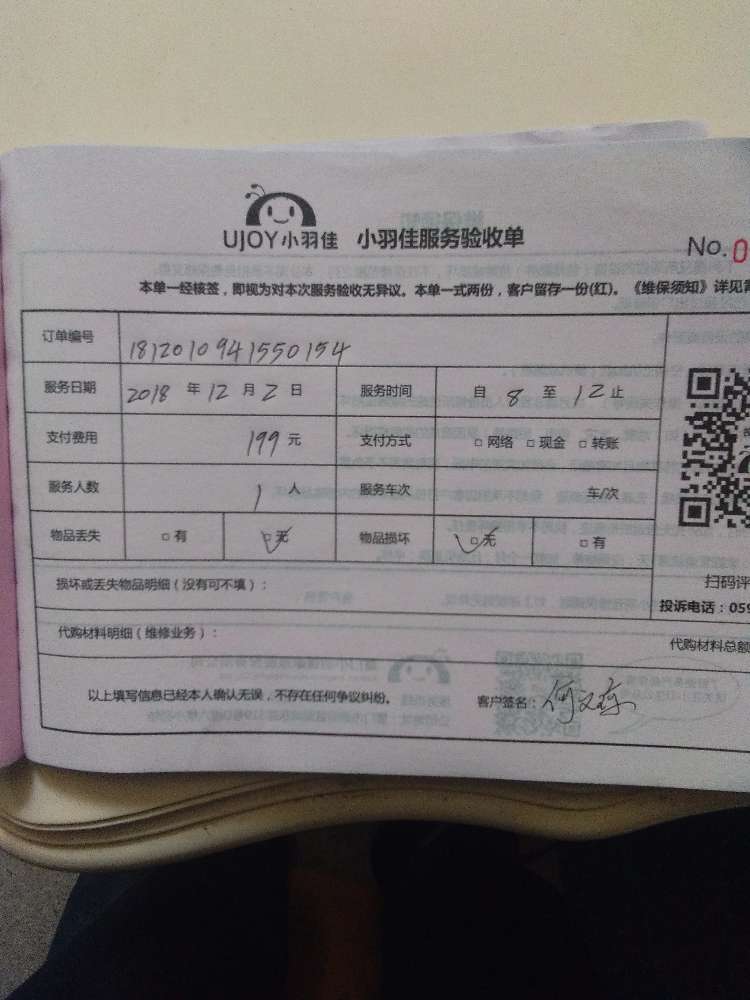 UJOY小羽佳 小羽佳服务验收单
No.0
本单一经核签，即视为对本次服务验收无异议。本单一式两份，客户留存一份(红)。《维保须知》详见
订单编号 1812010941550154
服务日期 2018 年 12 月 2 日 服务时间 自 8 至 12 止
支付费用 199 元 支付方式 □网络 □现金 □转账
服务人数 1 人 服务车次 车/次
物品丢失 □有 □无 物品损坏 □无 □有
损坏或丢失物品明细（没有可不填）：
扫码评
投诉电话：059
代购材料明细（维修业务）：
代购材料总额
以上填写信息已经本人确认无误，不存在任何争议纠纷。 客户签名：何